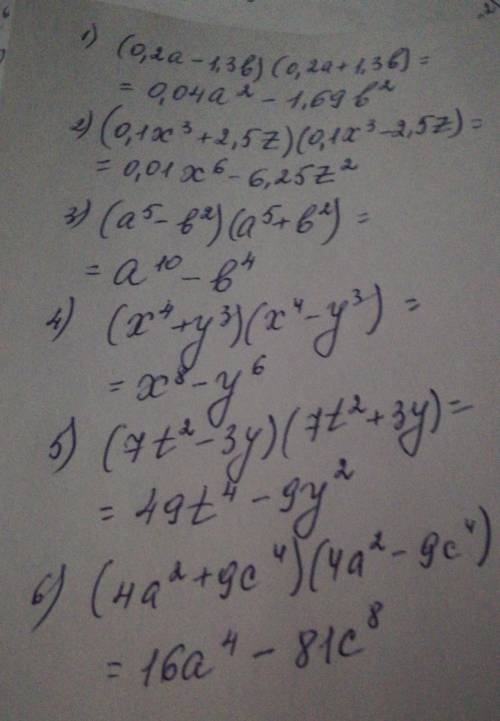 1) (0,2a - 1,3в) (0,2a + 1,3в) =
= 0,04a² - 1,69в²
2) (0,1x³ + 2,5z)(0,1x³ - 2,5z) =
= 0,01x⁶ - 6,25z²
3) (a⁵ - в²)(a⁵ + в²) =
= a¹⁰ - в⁴
4) (x⁴ + y³)(x⁴ - y³) =
= x⁸ - y⁶
5) (7t² - 3y)(7t² + 3y) =
= 49t⁴ - 9y²
6) (4a² + 9c⁴)(4a² - 9c⁴)
= 16a⁴ - 81c⁸